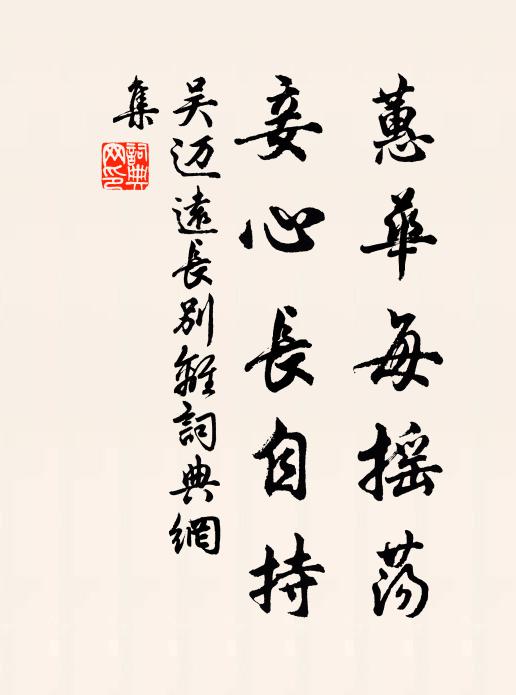 蕙華每摇荡
妾心長自持
吴迈遠長別離詞典網
集
詞典
网印